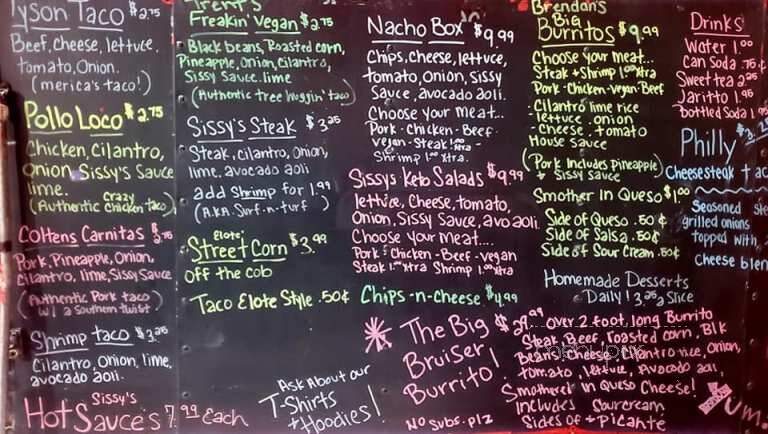 Tyson Taco $2.75
Beef, cheese, lettuce,
tomato, Onion.
(merica's taco!)
Pollo Loco $2.75
Chicken, Cilantro,
Onion, Sissy's Sauce
lime.
(Authentic Crazy Chicken taco)
Coltens Carnitas $2.75
Pork, Pineapple, Onion,
Cilantro, lime, Sissy Sauce
(Authentic Pork taco
w/ a Southern twist)
Shrimp taco $3.25
Cilantro, Onion, lime,
avocado aoli.
Sissy's
Hot Sauce's 7.99 Each
Trent's
Freakin' Vegan $2.75
Black beans, Roasted corn,
Pineapple, Onion, Cilantro,
Sissy Sauce, lime
(Authentic tree huggin' taco)
Sissy's Steak $3.25
Steak, cilantro, Onion,
lime, avocado aoli
add Shrimp for 1.99
(A.K.A. Surf-n-turf)
Elote
Street Corn $3.99
off the cob
Taco Elote Style .50¢
Ask About our
T-Shirts
+ Hoodies!
Nacho Box $9.99
Chips, Cheese, lettuce,
tomato, Onion, Sissy
Sauce, avocado aoli.
Choose your meat...
Pork - Chicken - Beef -
Vegan - Steak 1.00 Xtra -
Shrimp 1.00 Xtra.
Sissy's Keto Salads $9.99
lettice, Cheese, tomato,
Onion, Sissy Sauce, avo aoli.
Choose your meat....
Pork - Chicken - Beef - vegan
Steak 1.00 Xtra Shrimp 1.00 Xtra
Chips-n-cheese $4.99
The Big
Bruiser
Burrito!
$29.99
No Subs. plz
Over 2 foot long Burrito
Steak, Beef, roasted corn, Blk
Beans, cheese, Cilantro rice, Onion,
tomato, lettuce, Avocado aoli,
Smothered in Queso Cheese!
Includes Sourcream
Sides of + Picante
Yum.
Brendan's
Big
Burritos $9.99
Choose your meat...
Steak + Shrimp 1.00 Xtra
Pork - Chicken - Vegan - Beef
Cilantro lime rice
- lettuce . onion
- Cheese . tomato
House Sauce
(Pork Includes Pineapple
+ Sissy Sauce)
Smother In Queso $1.00
Side of Queso .50¢
Side of Salsa .50¢
Side of Sour Cream .50¢
Homemade Desserts
Daily! 3.25 a Slice
Drinks
Water 1.00
Can Soda .75¢
Sweet tea 2.25
Jaritto 1.95
bottled Soda 1.95
Philly $3.2
Cheesesteak tac
Seasoned ste
grilled onions
topped with
Cheese blen